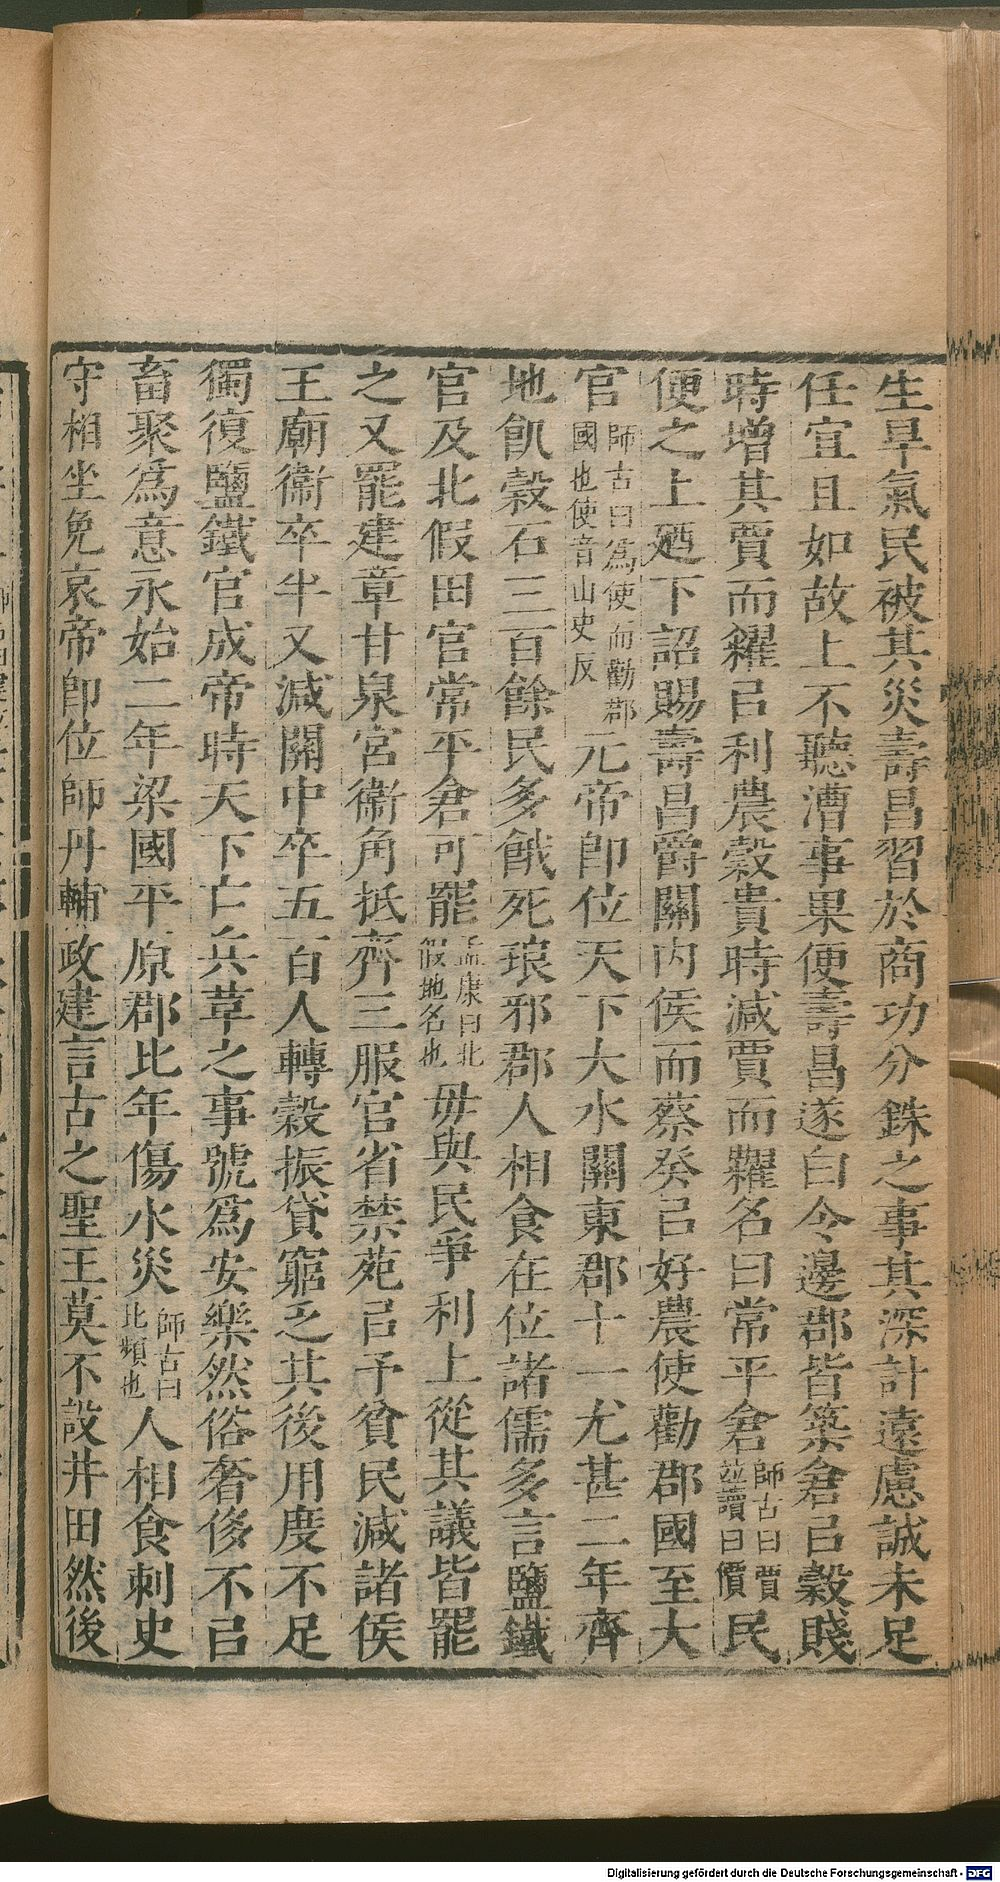 生旱氣民被其災壽昌習於商功分銖之事其深計遠慮誠未足
任宜且如故上不聽漕事果便壽昌遂白令邊郡皆築倉㠯穀賤
時增其賈而糴㠯利農穀貴時減賈而糶名曰常平倉師古曰賈並讀曰價民
便之上廼下詔賜壽昌爵關內侯而蔡癸㠯好農使勸郡國至大
官師古曰爲使而勸郡國也使音山史反元帝卽位天下大水關東郡十一尤甚二年齊
地飢穀石三百餘民多餓死琅邪郡人相食在位諸儒多言鹽鐵
官及北假田官常平倉可罷孟康曰北假地名也毋與民爭利上從其議皆罷
之又罷建章甘泉宮衞角抵齊三服官省禁苑㠯予貧民減諸侯
王廟衞卒半又減關中卒五百人轉穀振貸窮乏其後用度不足
獨復鹽鐵官成帝時天下亡兵革之事號爲安樂然俗奢侈不㠯
畜聚爲意永始二年梁國平原郡比年傷水災師古曰比頻也人相食刺史
守相坐免哀帝卽位師丹輔政建言古之聖王莫不設井田然後
Digitalisierung gefördert durch die Deutsche Forschungsgemeinschaft - DFG